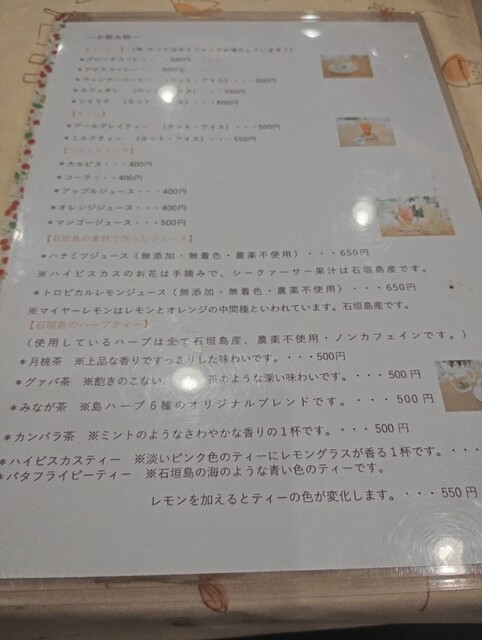 ～お飲み物～
＊ブレンドコーヒー・・・550円
＊アイスコーヒー・・・
＊ウィンナーコーヒー （ホット・アイス）・・・650円
＊カフェオレ （ホット・アイス）・・・550円
＊ソイラテ （ホット・アイス）・・・600円
＊アールグレイティー （ホット・アイス）・・・500円
＊ミルクティー （ホット・アイス）・・・550円
【ソフトドリンク】
＊カルピス・・・400円
＊コーラ・・・400円
＊アップルジュース・・・400円
＊オレンジジュース・・・400円
＊マンゴージュース・・・500円
【石垣島の素材で作ったジュース】
＊ハナミツジュース（無添加・無着色・農薬不使用）・・・650円
※ハイビスカスのお花は手摘みで、シークァーサー果汁は石垣島産です。
＊トロピカルレモンジュース（無添加・無着色・農薬不使用）・・・650円
※マイヤーレモンはレモンとオレンジの中間種といわれています。石垣島産です。
【石垣島のハーブティー】
（使用しているハーブは全て石垣島産、農薬不使用・ノンカフェインです。）
＊月桃茶 ※上品な香りですっきりした味わいです。・・・500円
＊グァバ茶 ※飽きのこない、 茶のような深い味わいです。・・・500円
＊みなが茶 ※島ハーブ６種のオリジナルブレンドです。・・・500円
＊カンバラ茶 ※ミントのようなさわやかな香りの１杯です。・・・500円
＊ハイビスカスティー ※淡いピンク色のティーにレモングラスが香る１杯です。・・・
＊バタフライピーティー ※石垣島の海のような青い色のティーです。
レモンを加えるとティーの色が変化します。・・・550円